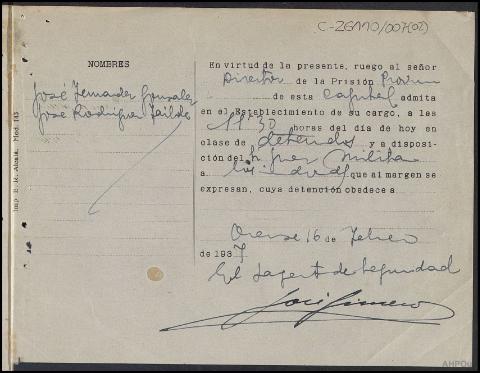 C-26110/007(02)
NOMBRES
José Fernandez Gonzalez
Jose Rodriguez
En virtud de la presente, ruego al señor
Director de la Prisión Provin
de esta Capital admita
en el Establecimiento de su cargo, a las
19'30 horas del día de hoy en
clase de detenidos y a disposi-
ción del Juez Militar
a los que al margen se
expresan, cuya detención obedece a
Orense 16 de Febrero
de 1937
El Sargento de Seguridad
José Gimeno
Imp. E. R. Alcalá. Mod. 143
AHPOu